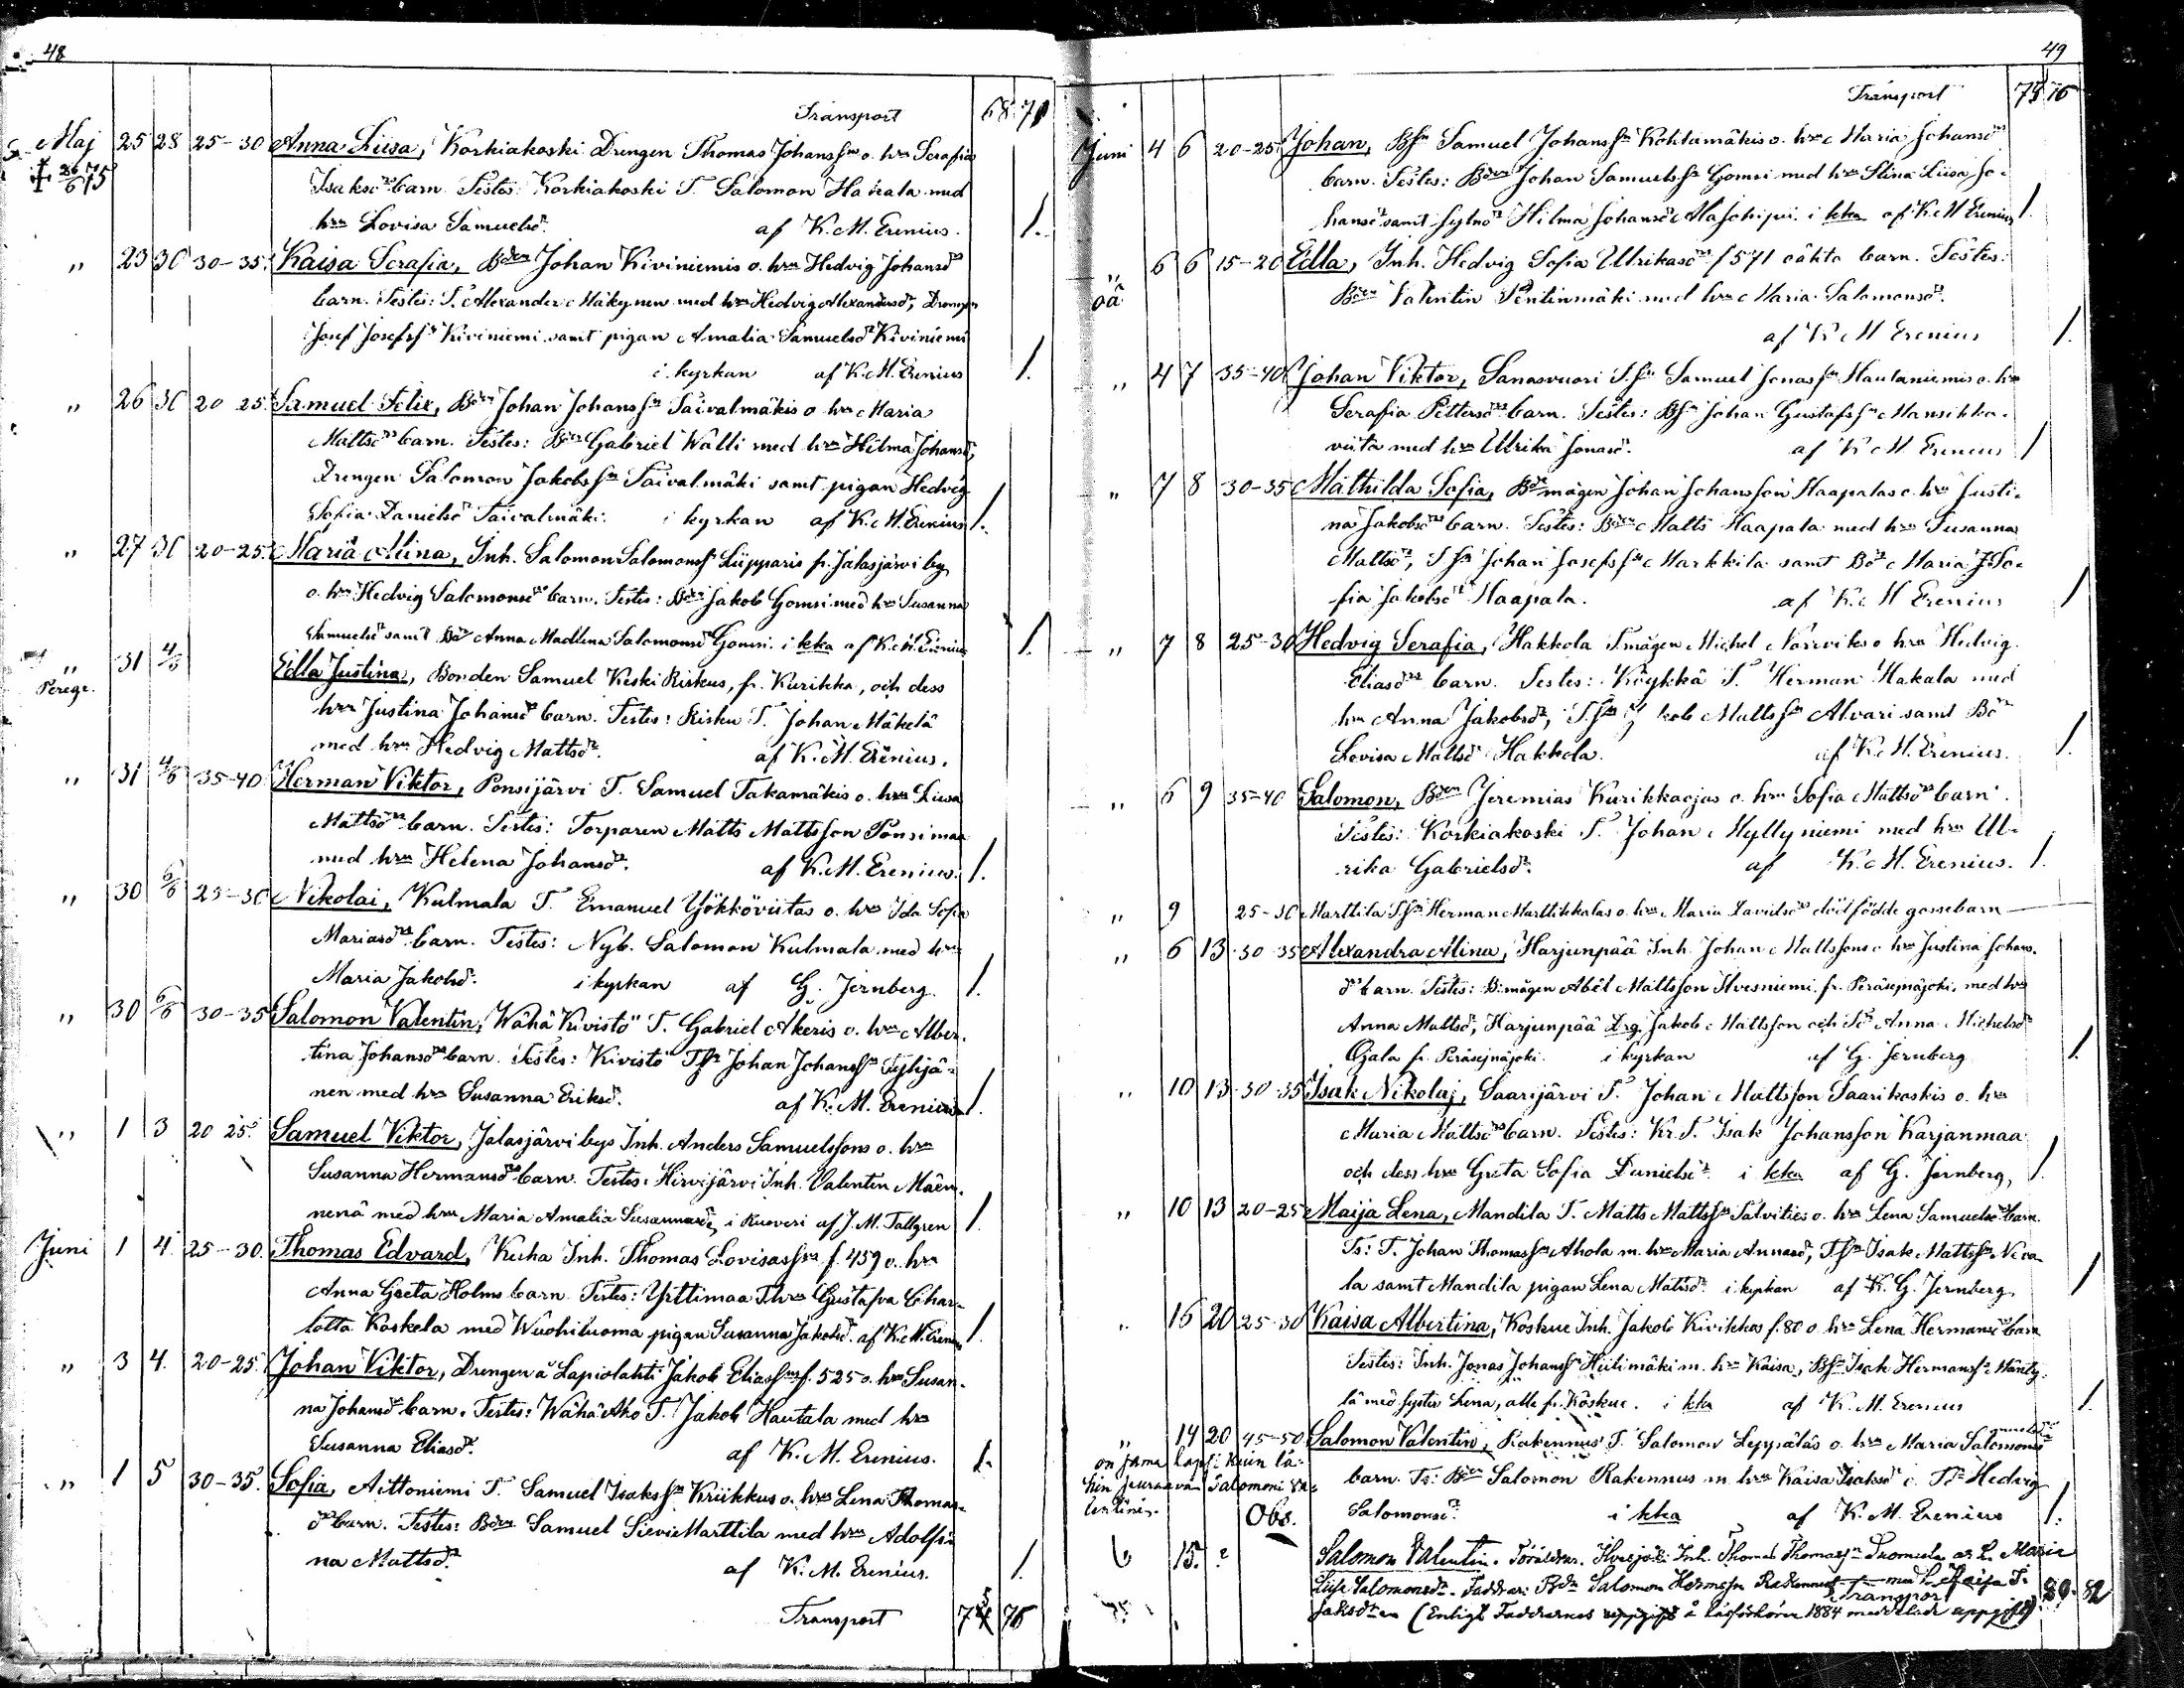 48
Transport 68 71
Maj 25 28 25-30 Anna Liisa, Korkiakoski Drengen Thomas Johansson o. hru Serafia
Isaksdrs barn. Testes: Korkiakoski T. Salomon Hakala med
hru Lovisa Samuelsdr. af K. M. Erenius. 1.
„ 23 30 30-35. Kaisa Serafia, Bden Johan Kiviniemis o. hru Hedvig Johansdrs
barn. Testes: T. Alexander Mäkynen med hru Hedvig Alexandersdr, Drengen
Josef Josefsfn Kiviniemi samt pigan Amalia Samuelsdr Kiviniemi
i kyrkan af K. M. Erenius 1.
„ 26 30 20 25. Samuel Felix, Bden Johan Johansfn Taivalmäkis o hru Maria
Mattsdrs barn. Testes: Bden Gabriel Wälli med hru Hilma Johansdr,
Drengen Salomon Jakobsfn Taivalmäki samt pigan Hedvig
Sofia Danielsdr Taivalmäki. i kyrkan af K. M. Erenius 1.
„ 27 30 20-25. Maria Alina, Inh. Salomon Salomonsfn Liipparis fr. Jalasjärvi by
o. hru Hedvig Salomonsdrs barn. Testes: Bden Jakob Gomsi med hru Susanna
Samuelsdr samt Bdr Anna Madlena Salomonsdr Gomsi. i kka af K. M. Erenius 1.
„ 31 4/6 Edla Justina, Bonden Samuel Keski Riskus, fr. Kurikka, och dess
Peregr. hru Justina Johansdrs barn. Testes: Risku T. Johan Mäkelä
med hru Hedvig Mattsdr. af K. M. Erenius.
„ 31 4/6 35-40 Herman Viktor, Ponsijärvi T. Samuel Takamäkis o. hru Liisa
Mattsdrs barn. Testes: Torparen Matts Mattsson Ponsimaa
med hru Helena Johansdr. af K. M. Erenius. 1.
„ 30 6/6 25-30 Nikolai, Kulmala T. Emanuel Yökköviitas o. hru Ida Sofia
Mariasdrs barn. Testes: Nyb. Salomon Kulmala med hru
Maria Jakobsdr. i kyrkan af G. Jernberg. 1.
„ 30 6/6 30-35 Salomon Valentin, Wähä Kivistö T. Gabriel Akeris o. hru Alber-
tina Johansdrs barn. Testes: Kivistö Tfn Johan Johansfn Tyhjä-
nen med hru Susanna Eriksdr. af K. M. Erenius 1.
„ 1 3 20 25. Samuel Viktor, Jalasjärvi bys Inh. Anders Samuelssons o. hru
Susanna Hermansdrs barn. Testes: Hirvijärvi Inh. Valentin Mäen-
nenä med hru Maria Amalia Susannasdr, i Kuoveri af J. M. Tallgren 1.
Juni 1 4. 25-30. Thomas Edvard, Keiha Inh. Thomas Lovisasfn f. 459 o. hru
Anna Greta Holms barn. Testes: Yrttimaa T. hru Gustafva Char-
lotta Koskela med Wuohiluoma pigan Susanna Jakobsdr. af K. M. Erenius 1.
„ 3 4. 20-25. Johan Viktor, Drengen å Lapiolahti Jakob Eliasfns f. 525 o. hru Susan-
na Johansdrs barn. Testes: Wähä Aho T. Jakob Hautala med hru
Susanna Eliasdr. af K. M. Erenius. 1.
„ 1 5 30-35. Sofia, Aittoniemi T. Samuel Isaksfn Kriikkus o. hru Lena Thomas-
drs barn. Testes: Bden Samuel Sievi Marttila med hru Adolfi-
na Mattsdr. af K. M. Erenius. 1.
Transport 75 76
49
Transport 75 76
Juni 4 6 20-25. Johan, Bfn Samuel Johansfn Kohtamäkis o. hru Maria Johansdrs
barn. Testes: Bden Johan Samuelsfn Gomsi med hru Stina Liisa Jo-
hansdr samt sytn Hilma Johansdr Alaschipii. i kka af K. M Erenius 1.
„ 6 6 15-20 Edla, Inh. Hedvig Sofia Ulrikasdrs f 571 oäkta barn. Testes:
oä Bden Valentin Pentinmäki med hru Maria Salomonsdr.
af K M Erenius 1.
„ 4 7 35-40 Johan Viktor, Sanasvuori T.fn Samuel Jonasfn Hautaniemis o. hru
Serafia Pettersdrs barn. Testes: Bfn Johan Gustafsfn Mansikka-
viita med hru Ulrika Jonasdr. af K M Erenius 1
„ 7 8 30-35 Mathilda Sofia, Bdemågen Johan Johansson Haapalas o. hru Justi-
na Jakobsdrs barn. Testes: Bden Matts Haapala med hru Susanna
Mattsdr, Tfn Johan Josefsfn Markkila samt Bdr Maria So-
fia Jakobsdr Haapala. af K. M Erenius 1
„ 7 8 25-30 Hedvig Serafia, Hakkola T.mågen Michel Norrviks o hru Hedvig
Eliasdrs barn. Testes: Köykkä T. Herman Hakala med
hru Anna Jakobsdr, T.fn Jakob Mattsfn Alvari samt Bdr
Lovisa Mattsdr Hakkola. af K. M. Erenius. 1.
„ 6 9 35-40 Salomon, Bden Jeremias Kurikkaojas o. hru Sofia Mattsdrs barn.
Testes: Korkiakoski T. Johan Myllyniemi med hru Ul-
rika Gabrielsdr. af K. M. Erenius. 1.
„ 9 25-30 Marttila Tfn Herman Marttikkalas o. hru Maria Davidsdrs dödfödde gossebarn
„ 6 13 30 35 Alexandra Alina, Harjunpää Inh. Johan Mattssons o hru Justina Johans-
drs barn. Testes: B:mågen Abel Mattsson Ilvesniemi fr. Peräseinäjoki, med hru
Anna Mattsdr, Harjunpää Drg. Jakob Mattsson och Tdr Anna Michelsdr
Ojala fr. Peräseinäjoki. i kyrkan af G. Jernberg 1.
„ 10 13 30-35 Isak Nikolaj, Saarijärvi T. Johan Mattsson Saarikoskis o. hru
Maria Mattsdrs barn. Testes: Kr.T. Isak Johansson Karjanmaa
och dess hru Greta Sofia Danielsdr i kka af G. Jernberg, 1.
„ 10 13 20-25 Maija Lena, Mandila T. Matts Mattsfn Salvitics o. hru Lena Samuelsdrs barn.
Ts: T. Johan Thomasfn Ahola m. hru Maria Annasdr, T.fn Isak Mattsfn Neva-
la samt Mandila pigan Lena Mattsdr. i kyrkan af K. G. Jernberg, 1
„ 15 20 25-30 Kaisa Albertina, Koskue Inh. Jakob Kivikkos f. 80 o. hru Lena Hermansdrs barn
Testes: Inh. Jonas Johansfn Hiilimäki m. hru Kaisa, Bfn Isak Hermansfn Mänty-
lä med syster Lena, alle fr. Koskue. i kka af K. M. Erenius 1.
„ 14 20 45-50 Salomon Valentin, Rakennus T. Salomon Leppäläs o. hru Maria Salomonsdrs
on sama lapsi kuin lä-
hin seuraava Salomoni Va-
lentini.
barn. Ts: Bden Salomon Rakennus m. hru Kaisa Isaksdr o. Tdr Hedvig
Obs. Salomonsdr. i kka af K. M. Erenius 1.
15. ? Salomon Valentin. Föräldrar. Ilvesjoki Inh. Thomas Thomasfn Tuomela o. h. Maria
Liisa Salomonsdr. Faddrar: Bdn Salomon Hermansfn Rakennus med h. Kaisa I-
Transport 80. 82
saksdr (Enligt Faddrarnas å läsförhören 1884 meddelade uppgift)